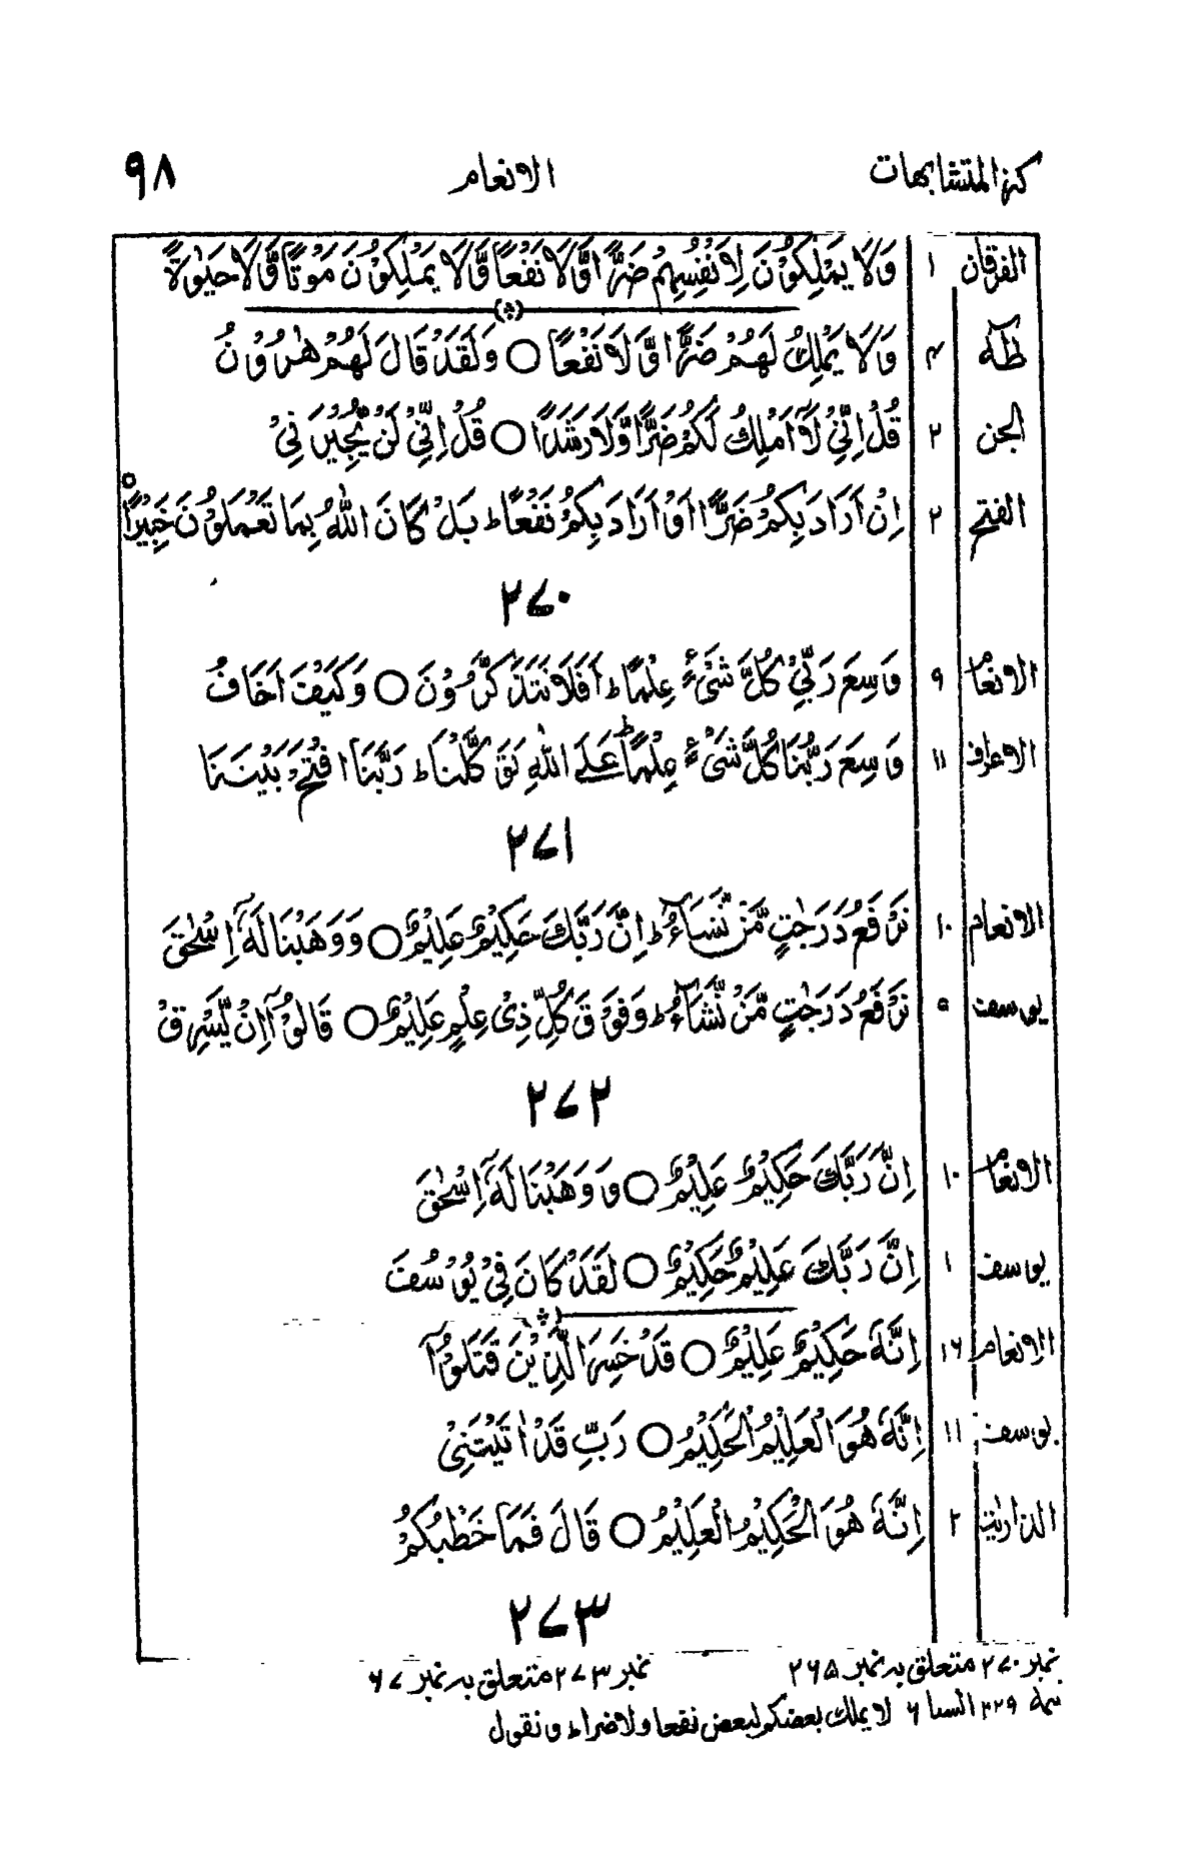 كنز المتشابهات الانعام ٩٨
الفرقان ١ وَلَا يَمْلِكُوْنَ لِاَنْفُسِهِمْ ضَرًّا وَّلَا نَفْعًا وَّلَا يَمْلِكُوْنَ مَوْتًا وَّلَا حَيٰوةً
طٰهٰ ٤ وَلَا يَمْلِكُ لَهُمْ ضَرًّا وَّلَا نَفْعًا ○ وَلَقَدْ قَالَ لَهُمْ هٰرُوْنُ
الجن ٢ قُلْ اِنِّيْ لَآ اَمْلِكُ لَكُمْ ضَرًّا وَّلَا رَشَدًا ○ قُلْ اِنِّيْ لَنْ يُّجِيْرَنِيْ
الفتح ٢ اِنْ اَرَادَ بِكُمْ ضَرًّا اَوْ اَرَادَ بِكُمْ نَفْعًا ط بَلْ كَانَ اللّٰهُ بِمَا تَعْمَلُوْنَ خَبِيْرًا ○
۲۷۰
الانعام ٩ وَسِعَ رَبِّيْ كُلَّ شَيْءٍ عِلْمًا ط اَفَلَا تَتَذَكَّرُوْنَ ○ وَكَيْفَ اَخَافُ
الاعراف ١١ وَسِعَ رَبُّنَا كُلَّ شَيْءٍ عِلْمًا ط عَلَى اللّٰهِ تَوَكَّلْنَا ط رَبَّنَا افْتَحْ بَيْنَنَا
۲۷۱
الانعام ١٠ نَرْفَعُ دَرَجٰتٍ مَّنْ نَّشَآءُ ط اِنَّ رَبَّكَ حَكِيْمٌ عَلِيْمٌ ○ وَوَهَبْنَا لَهٗٓ اِسْحٰقَ
يوسف ٩ نَرْفَعُ دَرَجٰتٍ مَّنْ نَّشَآءُ ط وَفَوْقَ كُلِّ ذِيْ عِلْمٍ عَلِيْمٌ ○ قَالُوْٓا اِنْ يَّسْرِقْ
۲۷۲
الانعام ١٠ اِنَّ رَبَّكَ حَكِيْمٌ عَلِيْمٌ ○ وَوَهَبْنَا لَهٗٓ اِسْحٰقَ
يوسف ١ اِنَّ رَبَّكَ عَلِيْمٌ حَكِيْمٌ ○ لَقَدْ كَانَ فِيْ يُوْسُفَ
الانعام ١٦ اِنَّهٗ حَكِيْمٌ عَلِيْمٌ ○ قَدْ خَسِرَ الَّذِيْنَ قَتَلُوْٓا
يوسف ١١ اِنَّهٗ هُوَ الْعَلِيْمُ الْحَكِيْمُ ○ رَبِّ قَدْ اٰتَيْتَنِيْ
الذاريٰت ٢ اِنَّهٗ هُوَ الْحَكِيْمُ الْعَلِيْمُ ○ قَالَ فَمَا خَطْبُكُمْ
۲۷۳
نمبر ۲۷۰ متعلق بہ نمبر ۲۶۵ نمبر ۲۷۳ متعلق بہ نمبر ۶۷
السبا ۶ لا يملك بعضكم لبعض نفعا ولا ضرا ط ونقول